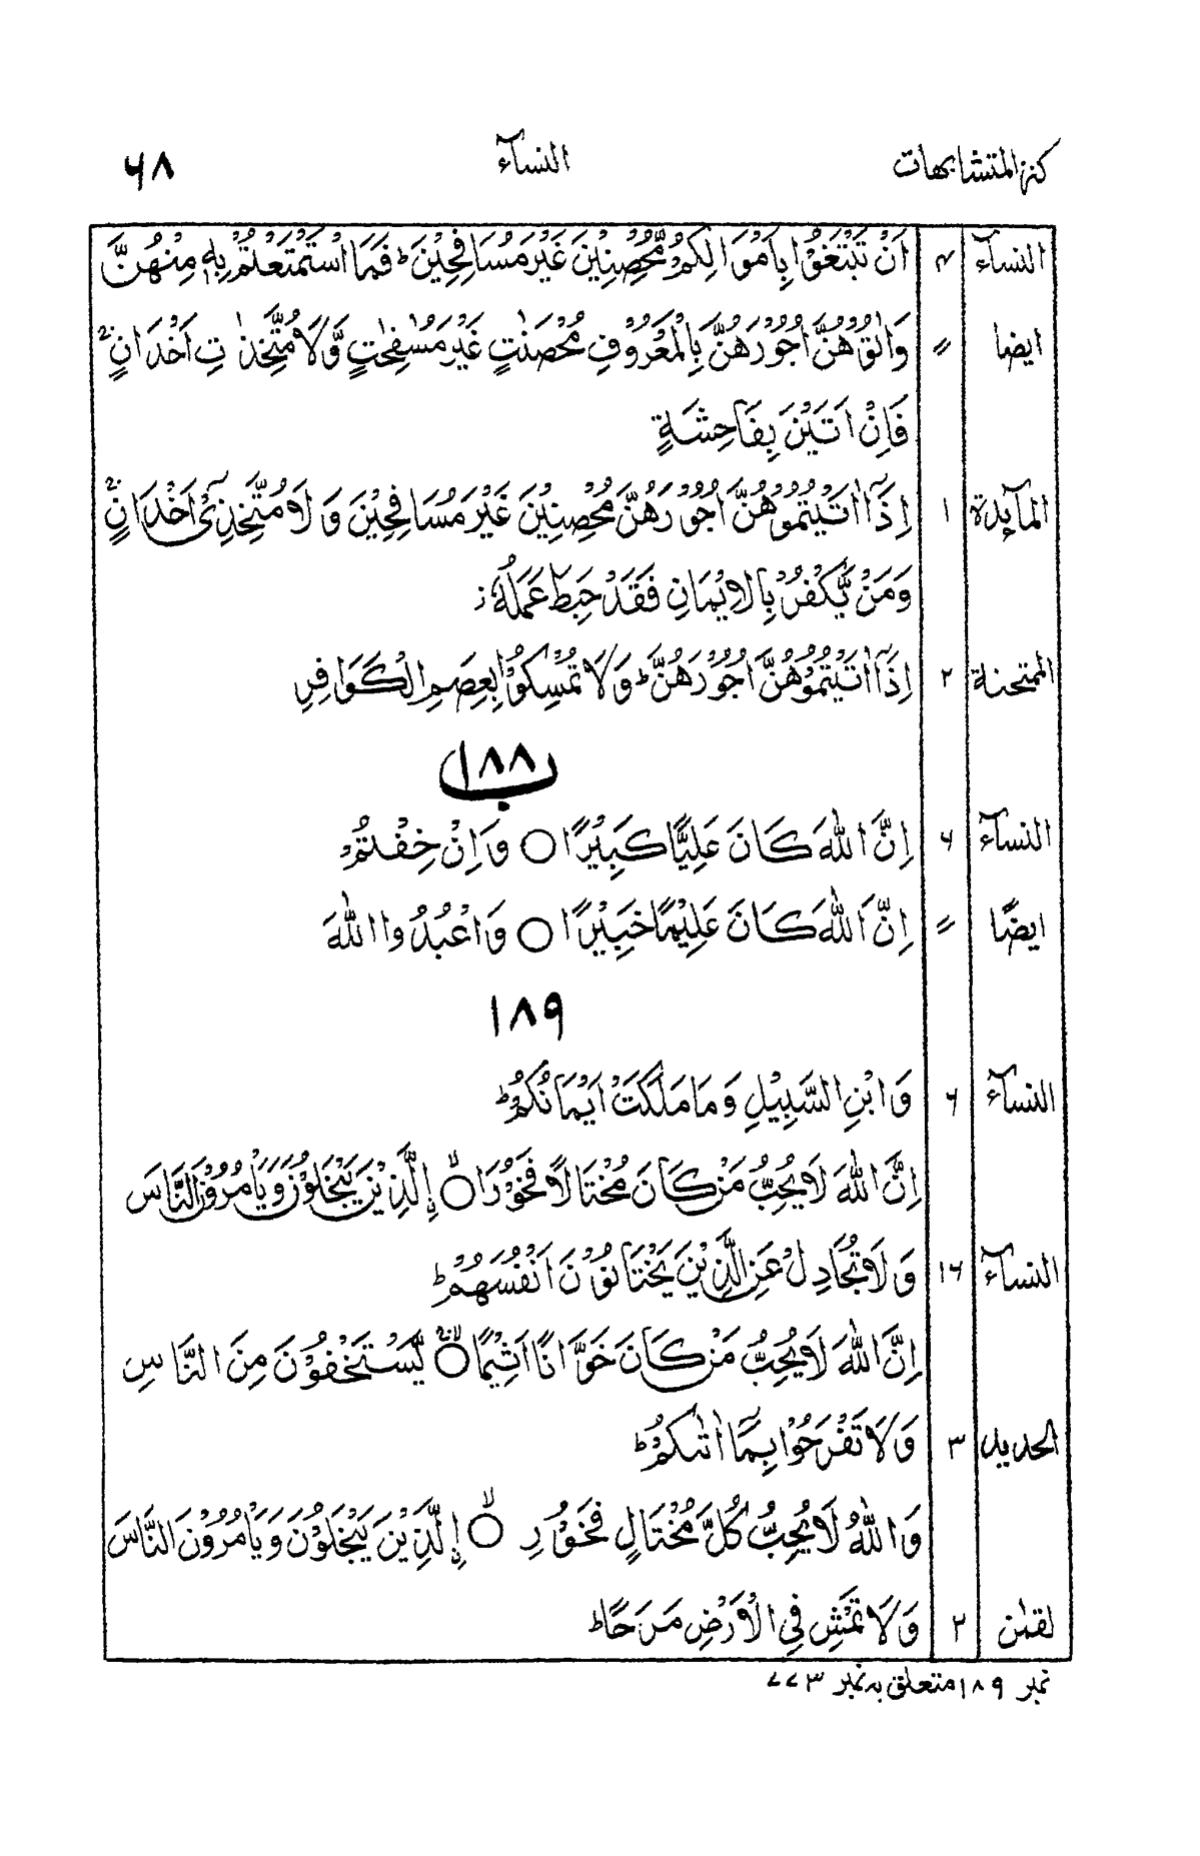 كنز المتشابهات النسآء ٦٨
النسآء ٤ اَنْ تَبْتَغُوْا بِاَمْوَالِكُمْ مُّحْصِنِيْنَ غَيْرَ مُسَافِحِيْنَ ؕ فَمَا اسْتَمْتَعْتُمْ بِهٖ مِنْهُنَّ
ايضا 〃 وَاٰتُوْهُنَّ اُجُوْرَهُنَّ بِالْمَعْرُوْفِ مُحْصَنٰتٍ غَيْرَ مُسٰفِحٰتٍ وَّلَا مُتَّخِذٰتِ اَخْدَانٍ ۚ
فَاِنْ اَتَيْنَ بِفَاحِشَةٍ
المآئدة ١ اِذَآ اٰتَيْتُمُوْهُنَّ اُجُوْرَهُنَّ مُحْصِنِيْنَ غَيْرَ مُسَافِحِيْنَ وَلَا مُتَّخِذِيْٓ اَخْدَانٍ ؕ
وَمَنْ يَّكْفُرْ بِالْاِيْمَانِ فَقَدْ حَبِطَ عَمَلُهٗ ز
الممتحنة ٢ اِذَآ اٰتَيْتُمُوْهُنَّ اُجُوْرَهُنَّ ؕ وَلَا تُمْسِكُوْا بِعِصَمِ الْكَوَافِرِ
ب ١٨٨
النسآء ٦ اِنَّ اللّٰهَ كَانَ عَلِيًّا كَبِيْرًا ○ وَاِنْ خِفْتُمْ
ايضًا 〃 اِنَّ اللّٰهَ كَانَ عَلِيْمًا خَبِيْرًا ○ وَاعْبُدُوا اللّٰهَ
١٨٩
النسآء ٦ وَابْنِ السَّبِيْلِ وَمَا مَلَكَتْ اَيْمَانُكُمْ ؕ
اِنَّ اللّٰهَ لَا يُحِبُّ مَنْ كَانَ مُخْتَالًا فَخُوْرَا ○ۙ اِلَّذِيْنَ يَبْخَلُوْنَ وَيَاْمُرُوْنَ النَّاسَ
النسآء ١٦ وَلَا تُجَادِلْ عَنِ الَّذِيْنَ يَخْتَانُوْنَ اَنْفُسَهُمْ ؕ
اِنَّ اللّٰهَ لَا يُحِبُّ مَنْ كَانَ خَوَّانًا اَثِيْمًا ○ۚۙ يَّسْتَخْفُوْنَ مِنَ النَّاسِ
الحديد ٣ وَلَا تَفْرَحُوْا بِمَآ اٰتٰىكُمْ ؕ
وَاللّٰهُ لَا يُحِبُّ كُلَّ مُخْتَالٍ فَخُوْرِ ○ۙ اِلَّذِيْنَ يَبْخَلُوْنَ وَيَاْمُرُوْنَ النَّاسَ
لقمٰن ٢ وَلَا تَمْشِ فِي الْاَرْضِ مَرَحًا ؕ
نمبر ١٨٩ متعلق به نمبر ٧٧٣